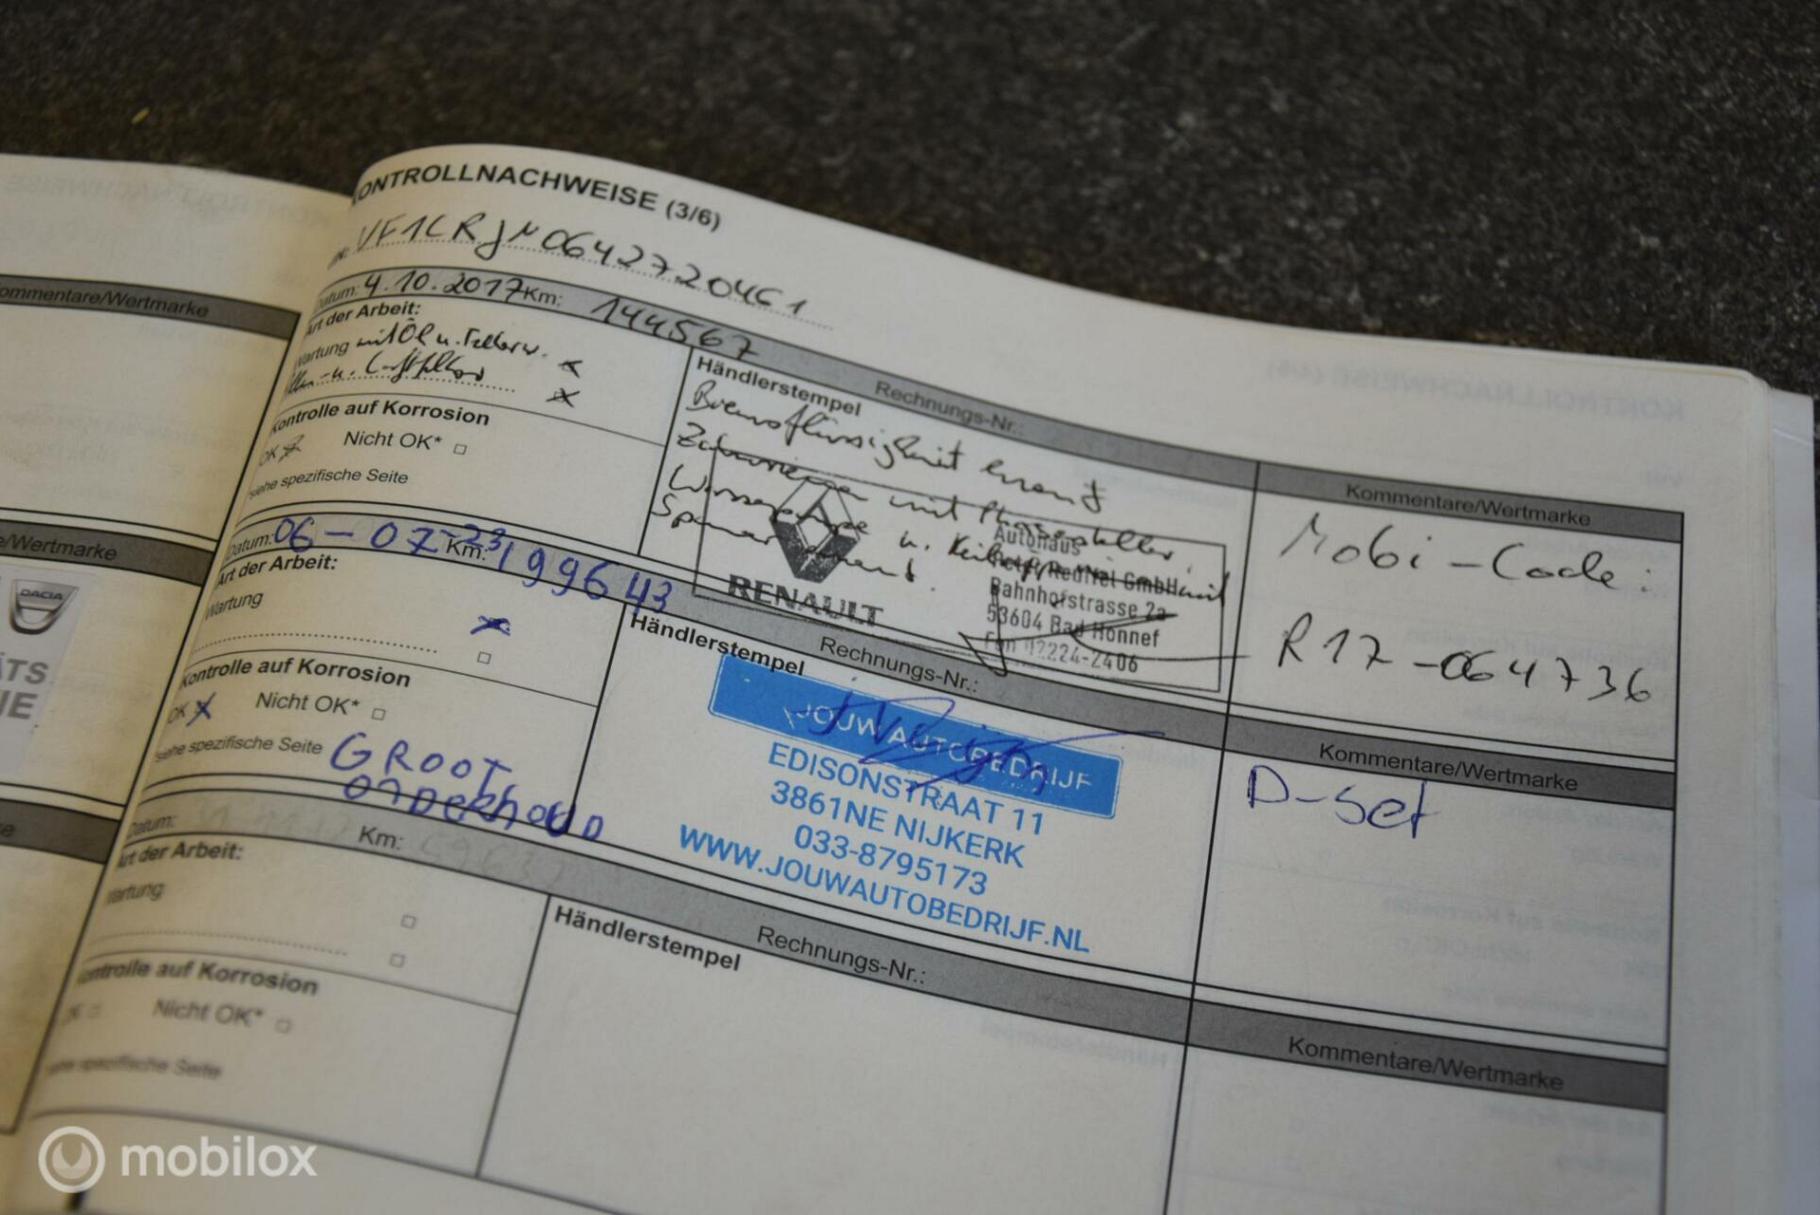 KONTROLLNACHWEISE (3/6)
VF1LRJN0642720461
Datum: 4.10.2017 Km: 144567
Art der Arbeit:
Wartung mit Öl u.
u. Luftfilter
Kontrolle auf Korrosion
OK Nicht OK*
*siehe spezifische Seite
Rechnungs-Nr.:
Händlerstempel
Bremsflüssigkeit ersetzt
Zahnriemen mit Phasensteller,
Wasserpumpe u. Keilrippenriemen mit
Spanner ersetzt
RENAULT
Autohaus
GmbH
Bahnhofstrasse 2a
53604 Bad Honnef
Fon 02224-2406
Kommentare/Wertmarke
Mobi-Code:
R17-064736
Datum: 06-07-23 Km: 199643
Art der Arbeit:
Wartung
Kontrolle auf Korrosion
OK X Nicht OK*
*siehe spezifische Seite
GROOT
ONDERHOUD
Rechnungs-Nr.:
Händlerstempel
JOUWAUTOBEDRIJF
EDISONSTRAAT 11
3861NE NIJKERK
033-8795173
WWW.JOUWAUTOBEDRIJF.NL
Kommentare/Wertmarke
D-Set
Datum: Km:
Art der Arbeit:
Wartung
Kontrolle auf Korrosion
OK Nicht OK*
*siehe spezifische Seite
Rechnungs-Nr.:
Händlerstempel
Kommentare/Wertmarke
Kommentare/Wertmarke
/Wertmarke
DACIA
mobilox